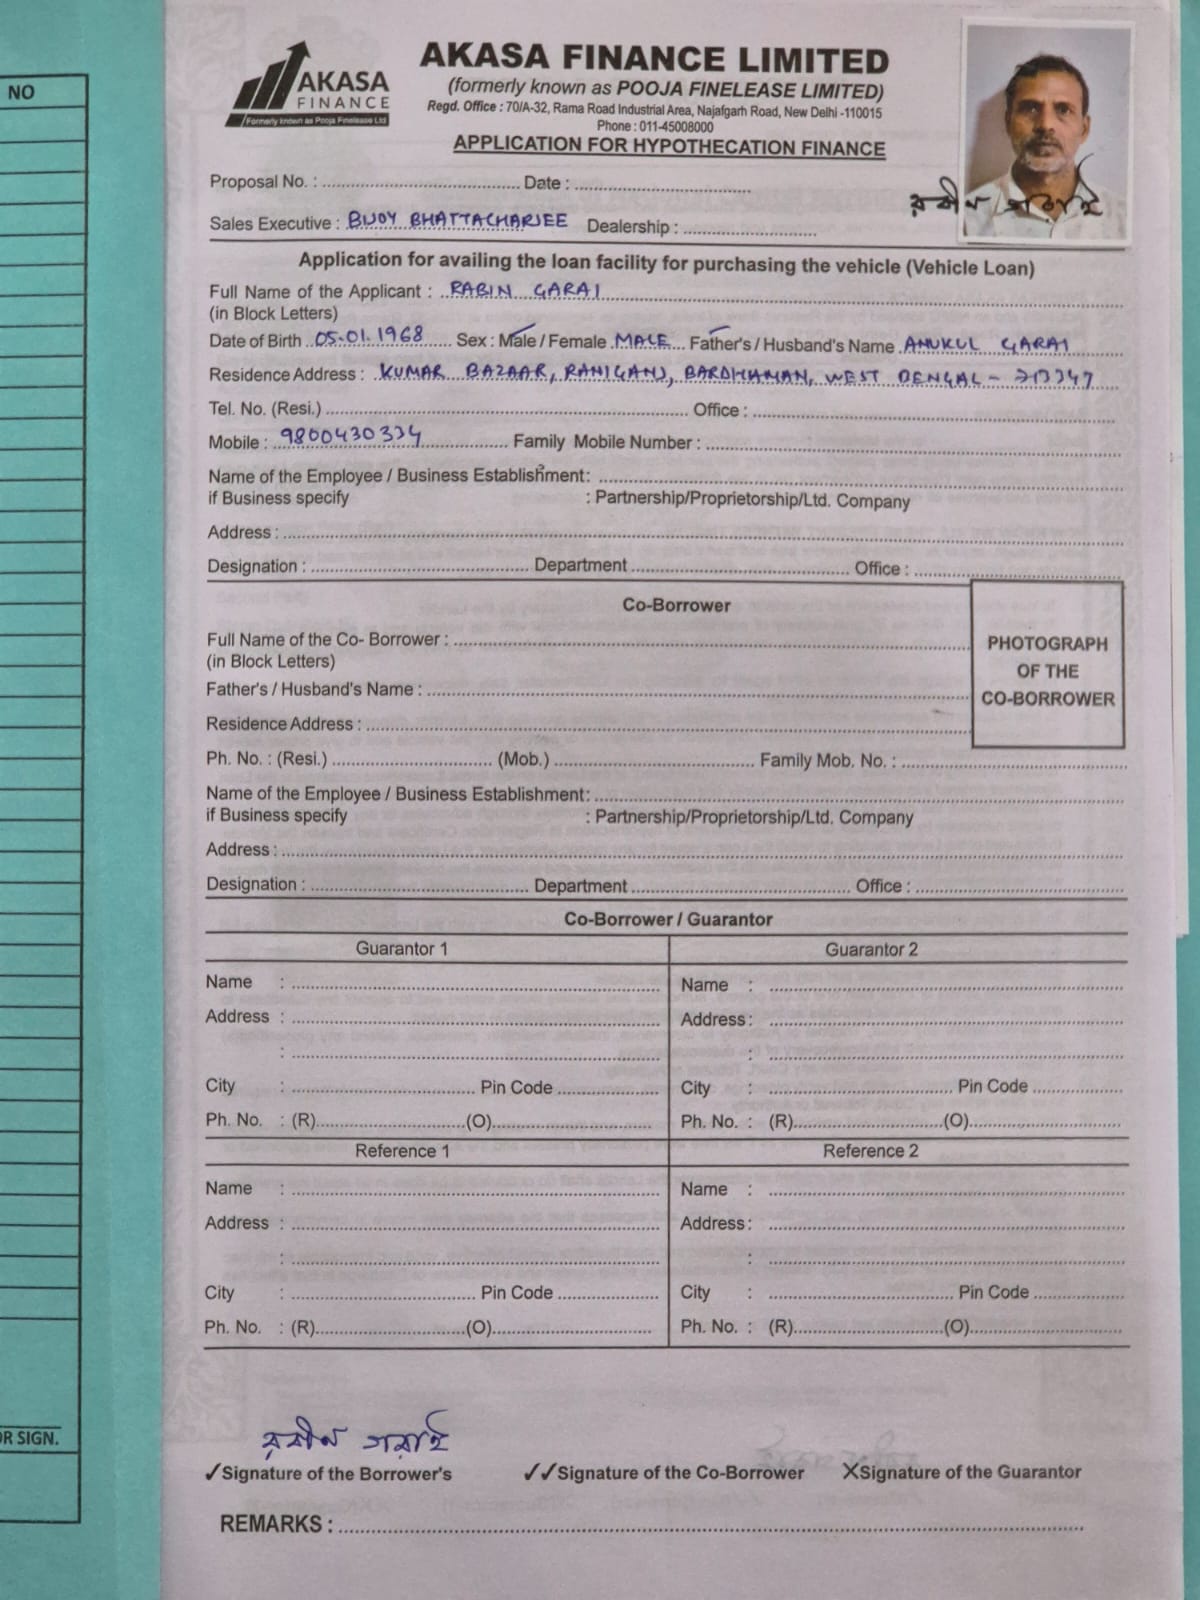 NO
AKASA
FINANCE
Formerly known as Pooja Finelease Ltd
AKASA FINANCE LIMITED
(formerly known as POOJA FINELEASE LIMITED)
Regd. Office : 70/A-32, Rama Road Industrial Area, Najafgarh Road, New Delhi -110015
Phone : 011-45008000
APPLICATION FOR HYPOTHECATION FINANCE
Proposal No. : Date :
রবীন গরাই
Sales Executive : BIJOY BHATTACHARJEE Dealership :
Application for availing the loan facility for purchasing the vehicle (Vehicle Loan)
Full Name of the Applicant : RABIN GARAI
(in Block Letters)
Date of Birth 05.01.1968 Sex : Male / Female MALE Father's / Husband's Name ANUKUL GARAI
Residence Address : KUMAR BAZAAR, RANIGANJ, BARDHAMAN, WEST BENGAL - 713347
Tel. No. (Resi.) Office :
Mobile : 9800430334 Family Mobile Number :
Name of the Employee / Business Establishment:
if Business specify : Partnership/Proprietorship/Ltd. Company
Address :
Designation : Department Office :
Co-Borrower
Full Name of the Co- Borrower :
(in Block Letters)
PHOTOGRAPH
OF THE
CO-BORROWER
Father's / Husband's Name :
Residence Address :
Ph. No. : (Resi.) (Mob.) Family Mob. No. :
Name of the Employee / Business Establishment:
if Business specify : Partnership/Proprietorship/Ltd. Company
Address :
Designation : Department Office :
Co-Borrower / Guarantor
Guarantor 1 Guarantor 2
Name : Name :
Address : Address :
: :
City : Pin Code City : Pin Code
Ph. No. : (R) (O) Ph. No. : (R) (O)
Reference 1 Reference 2
Name : Name :
Address : Address :
: :
City : Pin Code City : Pin Code
Ph. No. : (R) (O) Ph. No. : (R) (O)
OR SIGN.
রবীন গরাই
✓Signature of the Borrower's ✓✓Signature of the Co-Borrower XSignature of the Guarantor
REMARKS :